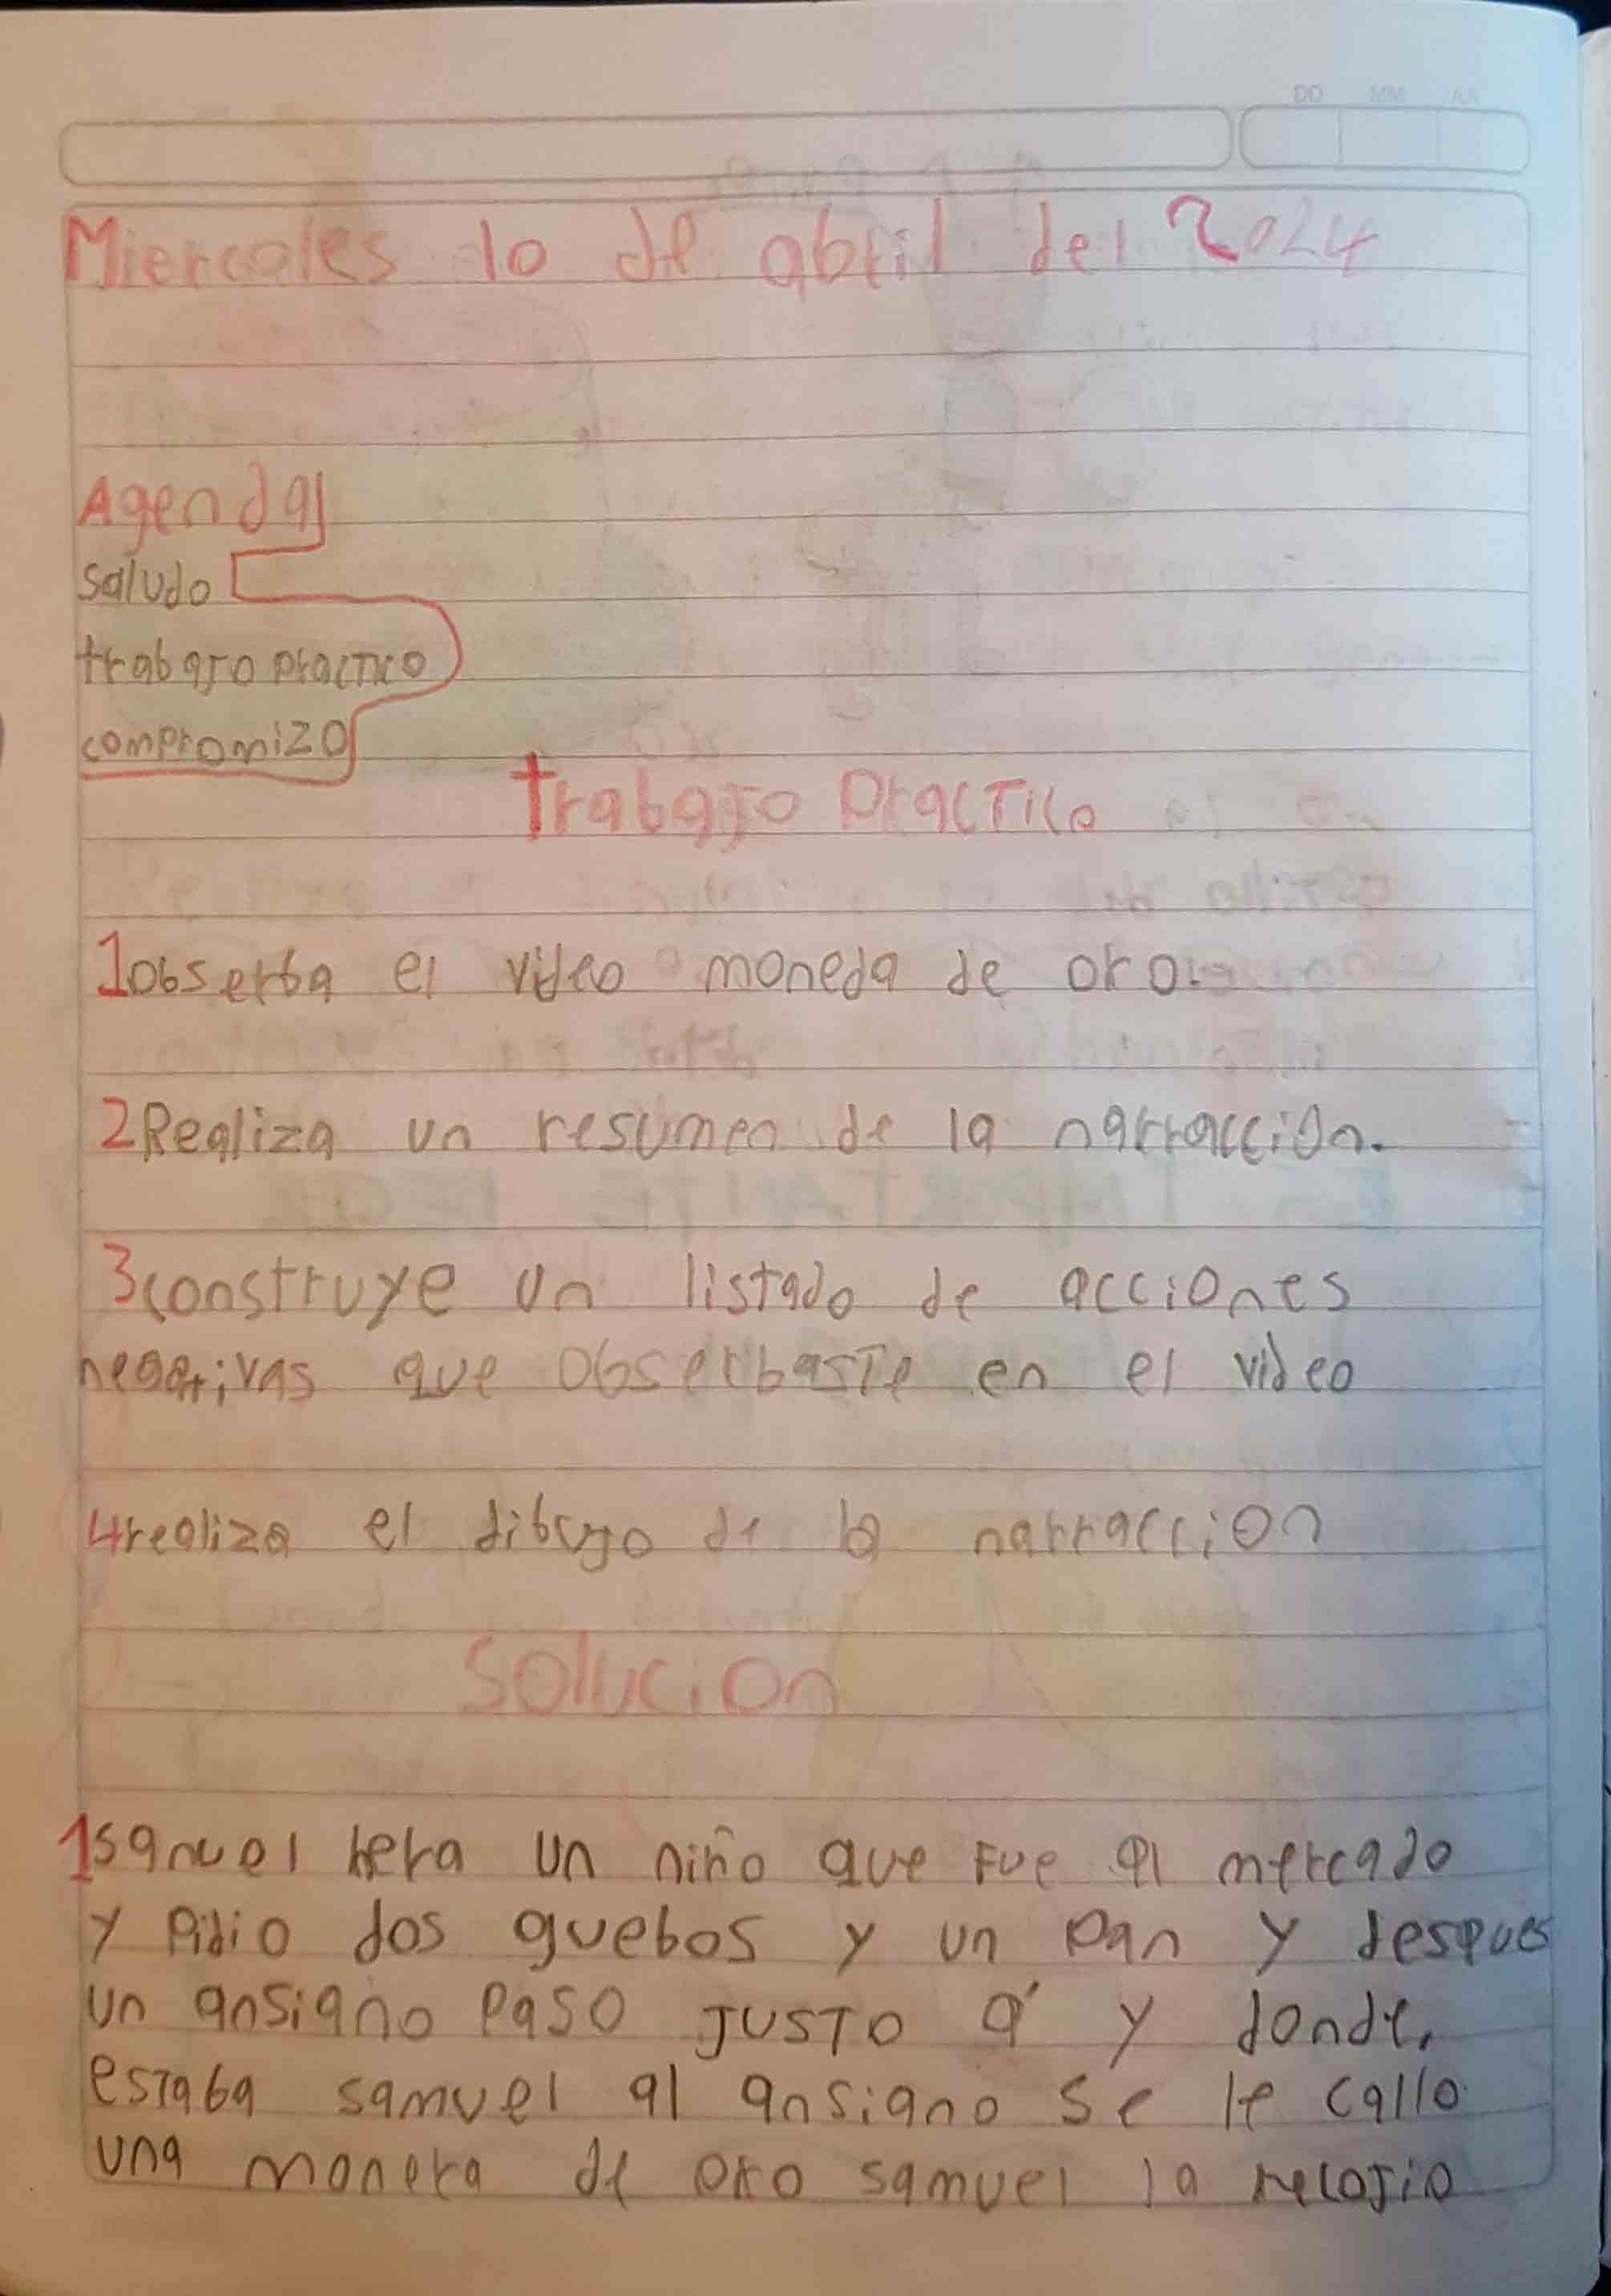 DD MM AA
Miercoles 10 de abril del 2024
Agenda
saludo
trabajo practico
compromizo
trabajo practico
1 obserba el video moneda de oro.
2 Realiza un resumen de la narracción.
3 construye un listado de acciones
negativas que obserbaste en el video
4 realiza el dibujo de la narraccion
Solucion
1 samuel hera un niño que fue al mercado
y pidio dos guebos y un pan y despues
un ansiano paso justo a y donde,
estaba samuel al ansiano se le callo
una monera de oro samuel la recojio